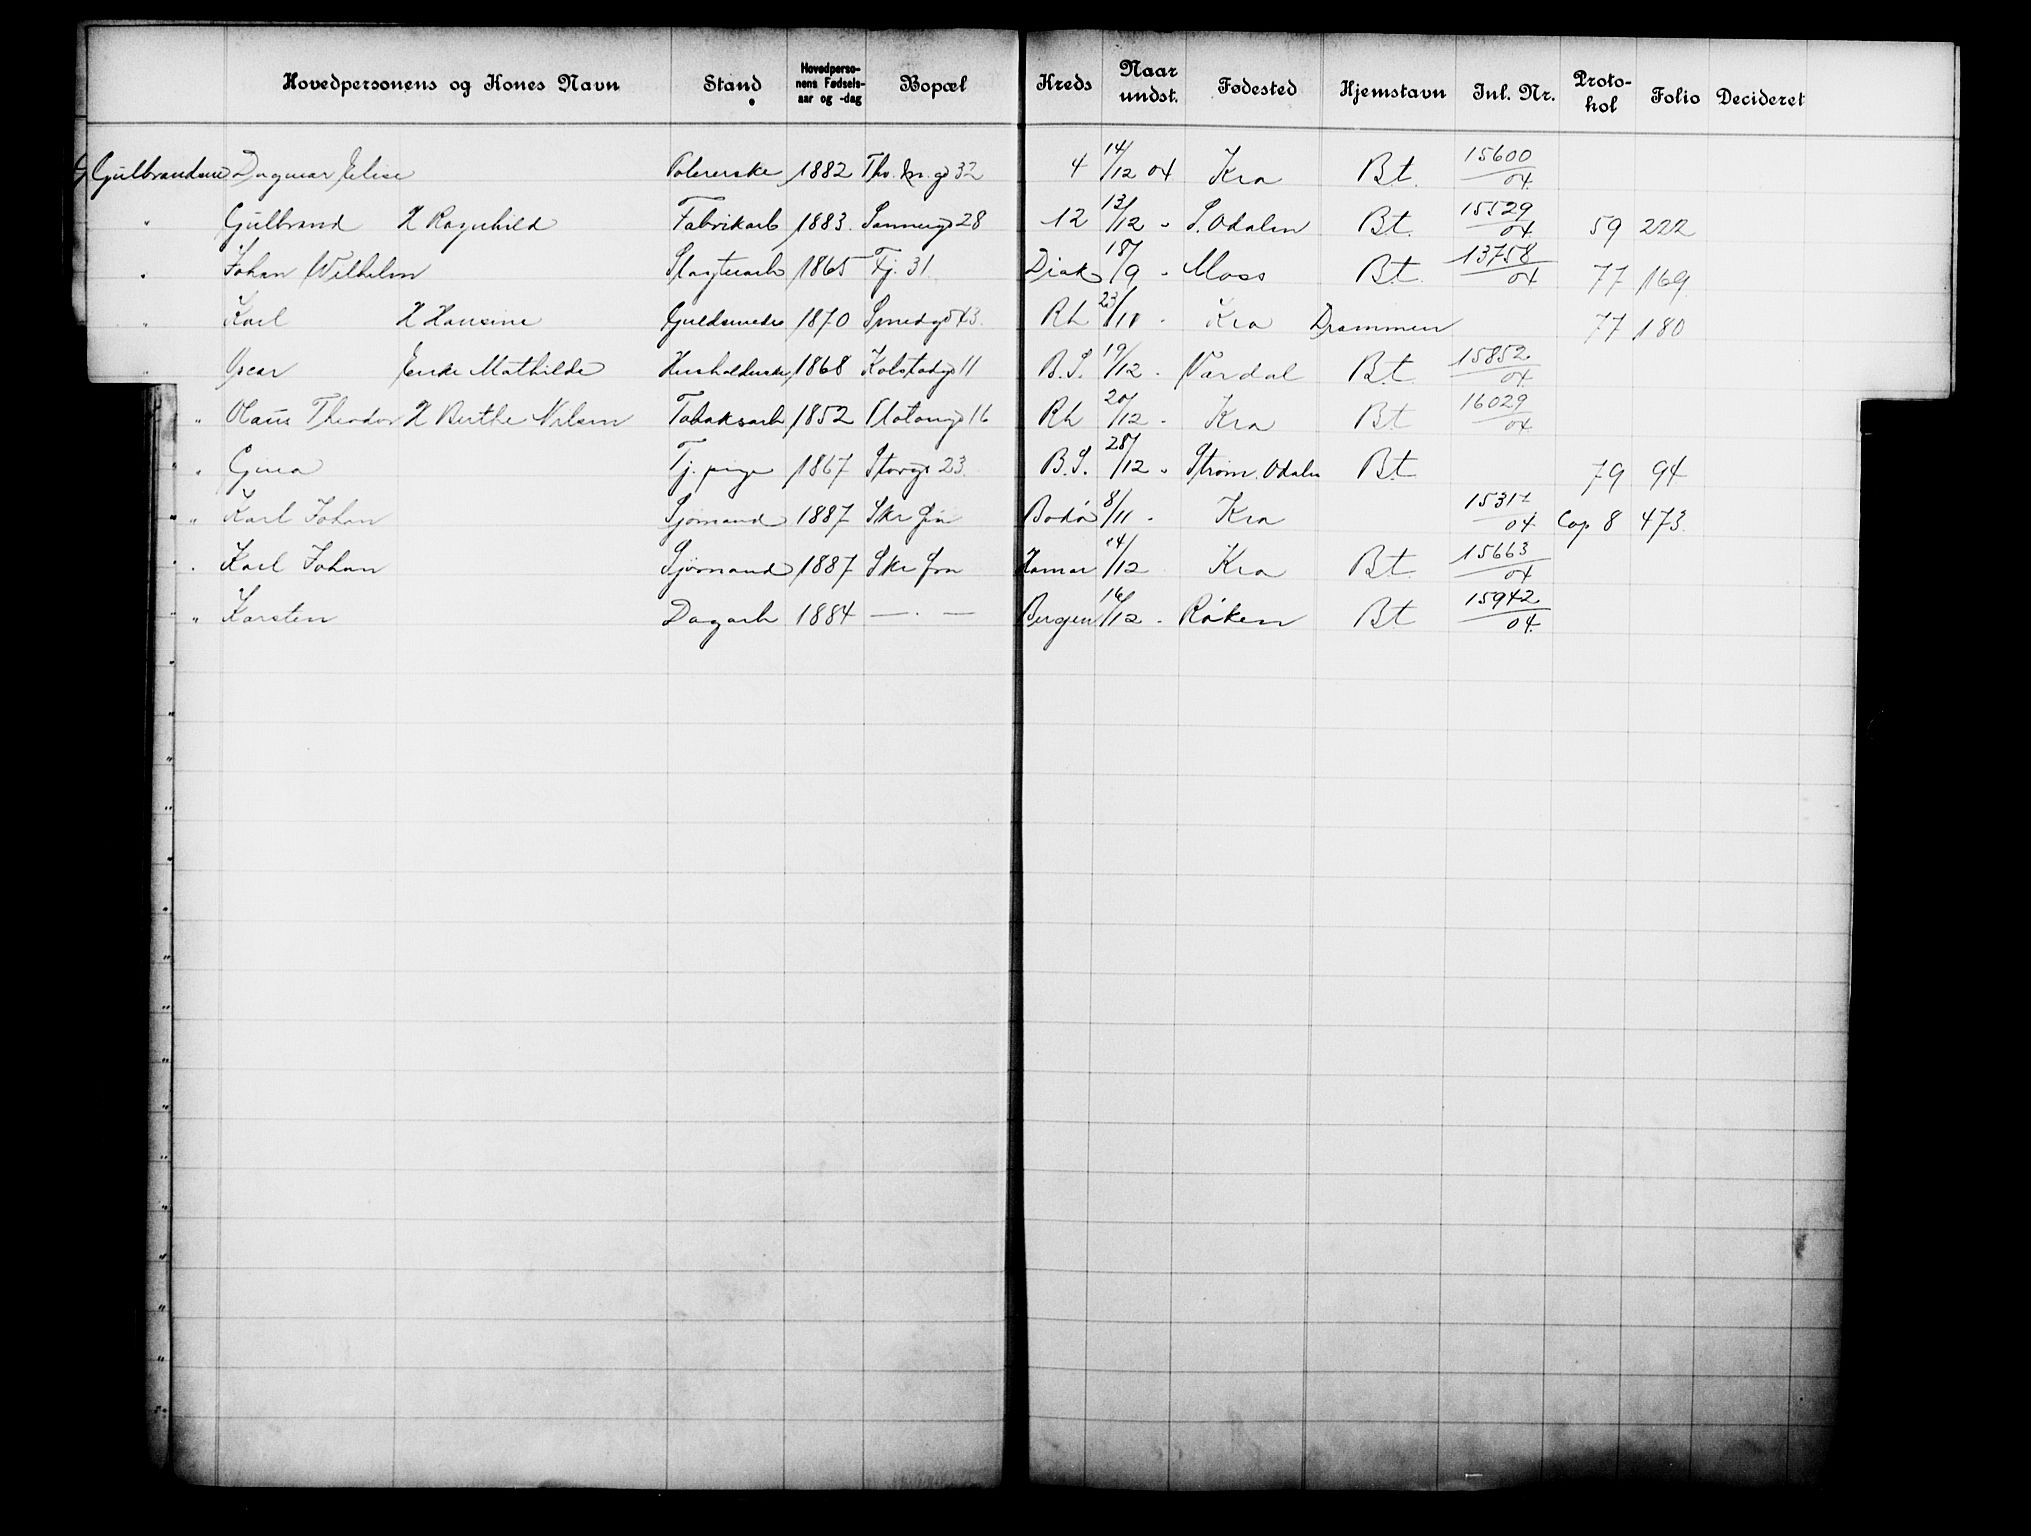 Hovedpersonens og Kones Navn Stand Hovedperso-nens Fødsels-aar og -dag Bopæl Kreds Naar undst. Fødested Hjemstavn Inl. Nr. Proto-kol Folio Decideret
Gulbrandsen Dagmar Elise Polererske 1882 32 4 14/12 04 Kra Bt. 15600/04
" Gulbrand H Ragnhild Fabrikarb 1883 Sannergd 28 12 13/12 - S. Odalen Bt. 15529/04 59 222
" Johan Wilhelm Slagteriarb 1865 Fj. 31 Diak 18/9 - Moss Bt. 13758/04 77 169
" Karl H Hansine Guldsmeds 1870 Smedgd 43 Rh 23/11 - Kra Drammen 77 180
" Oscar Enke Mathilde Husholderske 1868 Kolstadgd 11 B.S. 19/12 - Vardal Bt 15852/04
" Olaus Theodor H Berthe Nilsen Tobaksarb 1852 16 Rh 20/12 - Kra Bt 16029/04
" Gina Tj. pige 1867 Storgd 23 B.S. 28/12 - Strøm. Odalen Bt 79 94
" Karl Johan Sjømand 1887 Bodø 8/11 - Kra 15317/04 Cop 8 473
" Karl Johan Sjømand 1887 Hamar 14/12 Kra Bt. 15663/04
" Karsten Dagarb 1884 — . — Bergen 16/12 - Røken Bt 15942/04